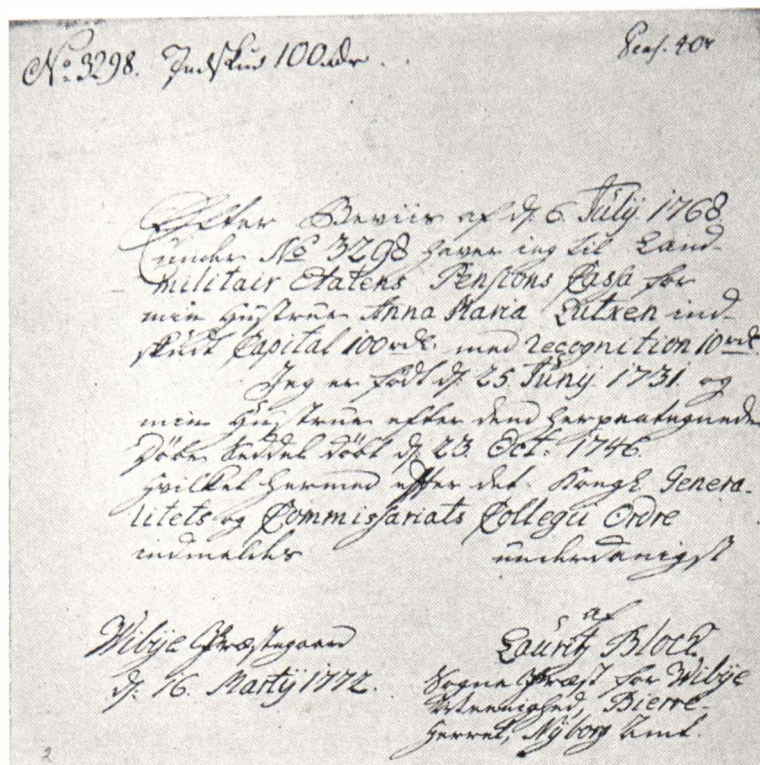 No 3298. Indskud 100 rdr. Pens. 40 r
Efter Beviis af d. 6. Julÿ. 1768
under No 3298 haver ieg til Land-
militair Etatens Pensions Casa for
min Hustrue Anna Maria Lutxen ind-
skudt Capital 100 rdr. med recognition 10 rdr.
Jeg er født d. 25 Junij 1731. og
min Hustrue efter dend herpaategnede
Døbe Seddel døbt d. 23. Oct. 1746.
Hvilket hermed efter det Kongl. Genera-
litets og Commissariats Collegii Ordre
indmeldes underdanigst
af
Wibÿe Præstegaard Lauritz Bloch
d. 16. Martÿ 1772. Sogne Præst for Wibÿe
Meenighed, Bierre-
Herret, Nÿborg Amt.
2